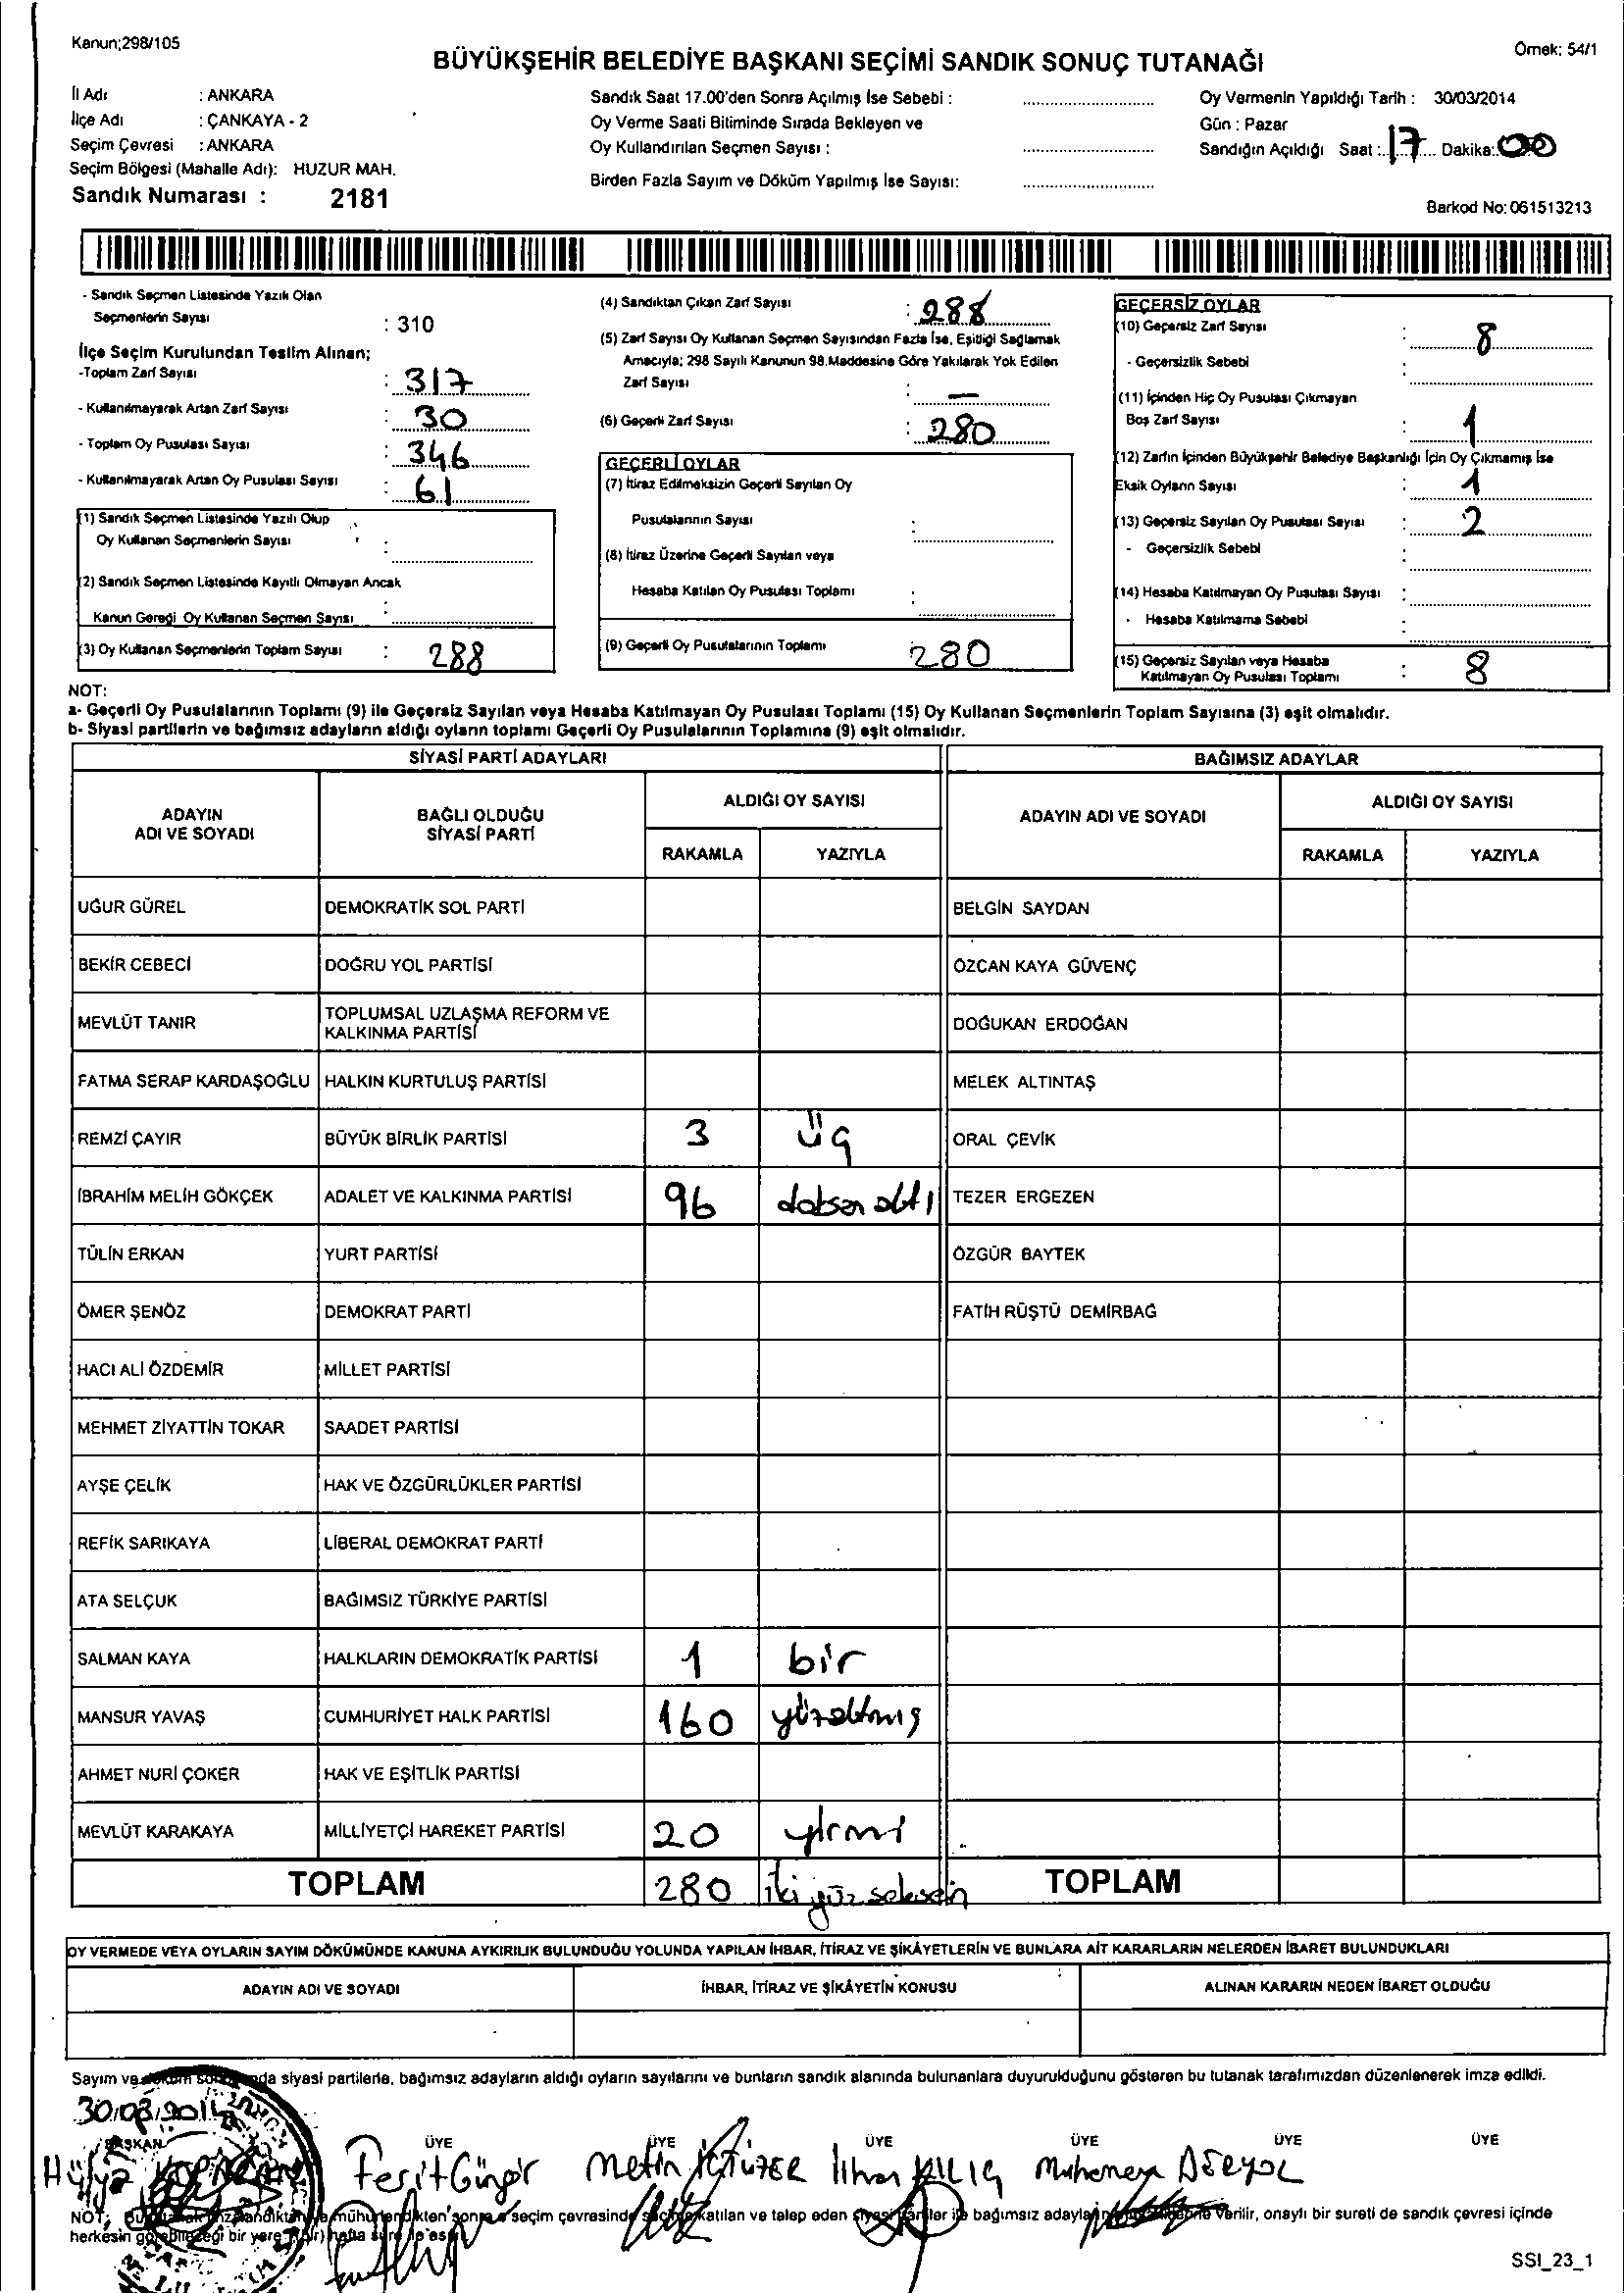 Kanun;298/105
Örnek: 54/1
BÜYÜKŞEHİR BELEDİYE BAŞKANI SEÇİMİ SANDIK SONUÇ TUTANAĞI
İl Adı : ANKARA
İlçe Adı : ÇANKAYA - 2
Seçim Çevresi : ANKARA
Seçim Bölgesi (Mahalle Adı): HUZUR MAH.
Sandık Numarası : 2181
Sandık Saat 17.00'den Sonra Açılmış İse Sebebi :
Oy Verme Saati Bitiminde Sırada Bekleyen ve
Oy Kullandırılan Seçmen Sayısı :
Birden Fazla Sayım ve Döküm Yapılmış İse Sayısı:
Oy Vermenin Yapıldığı Tarih : 30/03/2014
Gün : Pazar
Sandığın Açıldığı Saat : 17 Dakika: 00
Barkod No: 061513213
- Sandık Seçmen Listesinde Yazılı Olan
Seçmenlerin Sayısı : 310
İlçe Seçim Kurulundan Teslim Alınan;
-Toplam Zarf Sayısı : 317
- Kullanılmayarak Artan Zarf Sayısı : 30
- Toplam Oy Pusulası Sayısı : 346
- Kullanılmayarak Artan Oy Pusulası Sayısı : 61
(1) Sandık Seçmen Listesinde Yazılı Olup
Oy Kullanan Seçmenlerin Sayısı :
(2) Sandık Seçmen Listesinde Kayıtlı Olmayan Ancak
Kanun Gereği Oy Kullanan Seçmen Sayısı :
(3) Oy Kullanan Seçmenlerin Toplam Sayısı : 288
(4) Sandıktan Çıkan Zarf Sayısı : 288
(5) Zarf Sayısı Oy Kullanan Seçmen Sayısından Fazla İse, Eşitliği Sağlamak
Amacıyla; 298 Sayılı Kanunun 98.Maddesine Göre Yakılarak Yok Edilen
Zarf Sayısı : —
(6) Geçerli Zarf Sayısı : 280
GEÇERLİ OYLAR
(7) İtiraz Edilmeksizin Geçerli Sayılan Oy
Pusulalarının Sayısı :
(8) İtiraz Üzerine Geçerli Sayılan veya
Hesaba Katılan Oy Pusulası Toplamı :
(9) Geçerli Oy Pusulalarının Toplamı : 280
GEÇERSİZ OYLAR
(10) Geçersiz Zarf Sayısı : 8
- Geçersizlik Sebebi :
(11) İçinden Hiç Oy Pusulası Çıkmayan
Boş Zarf Sayısı : 1
(12) Zarfın İçinden Büyükşehir Belediye Başkanlığı İçin Oy Çıkmamış İse
Eksik Oyların Sayısı : 1
(13) Geçersiz Sayılan Oy Pusulası Sayısı : 2
- Geçersizlik Sebebi :
(14) Hesaba Katılmayan Oy Pusulası Sayısı :
- Hesaba Katılmama Sebebi :
(15) Geçersiz Sayılan veya Hesaba
Katılmayan Oy Pusulası Toplamı : 8
NOT:
a- Geçerli Oy Pusulalarının Toplamı (9) ile Geçersiz Sayılan veya Hesaba Katılmayan Oy Pusulası Toplamı (15) Oy Kullanan Seçmenlerin Toplam Sayısına (3) eşit olmalıdır.
b- Siyasi partilerin ve bağımsız adayların aldığı oyların toplamı Geçerli Oy Pusulalarının Toplamına (9) eşit olmalıdır.
SİYASİ PARTİ ADAYLARI
BAĞIMSIZ ADAYLAR
ADAYIN ADI VE SOYADI
BAĞLI OLDUĞU SİYASİ PARTİ
ALDIĞI OY SAYISI
RAKAMLA YAZIYLA
ADAYIN ADI VE SOYADI
ALDIĞI OY SAYISI
RAKAMLA YAZIYLA
UĞUR GÜREL DEMOKRATİK SOL PARTİ BELGİN SAYDAN
BEKİR CEBECİ DOĞRU YOL PARTİSİ ÖZCAN KAYA GÜVENÇ
MEVLÜT TANIR TOPLUMSAL UZLAŞMA REFORM VE KALKINMA PARTİSİ DOĞUKAN ERDOĞAN
FATMA SERAP KARDAŞOĞLU HALKIN KURTULUŞ PARTİSİ MELEK ALTINTAŞ
REMZİ ÇAYIR BÜYÜK BİRLİK PARTİSİ 3 üç ORAL ÇEVİK
İBRAHİM MELİH GÖKÇEK ADALET VE KALKINMA PARTİSİ 96 doksan altı TEZER ERGEZEN
TÜLİN ERKAN YURT PARTİSİ ÖZGÜR BAYTEK
ÖMER ŞENÖZ DEMOKRAT PARTİ FATİH RÜŞTÜ DEMİRBAĞ
HACI ALİ ÖZDEMİR MİLLET PARTİSİ
MEHMET ZİYATTİN TOKAR SAADET PARTİSİ
AYŞE ÇELİK HAK VE ÖZGÜRLÜKLER PARTİSİ
REFİK SARIKAYA LİBERAL DEMOKRAT PARTİ
ATA SELÇUK BAĞIMSIZ TÜRKİYE PARTİSİ
SALMAN KAYA HALKLARIN DEMOKRATİK PARTİSİ 1 bir
MANSUR YAVAŞ CUMHURİYET HALK PARTİSİ 160 yüzaltmış
AHMET NURİ ÇOKER HAK VE EŞİTLİK PARTİSİ
MEVLÜT KARAKAYA MİLLİYETÇİ HAREKET PARTİSİ 20 yirmi
TOPLAM 280 iki yüz seksen TOPLAM
OY VERMEDE VEYA OYLARIN SAYIM DÖKÜMÜNDE KANUNA AYKIRILIK BULUNDUĞU YOLUNDA YAPILAN İHBAR, İTİRAZ VE ŞİKÂYETLERİN VE BUNLARA AİT KARARLARIN NELERDEN İBARET BULUNDUKLARI
ADAYIN ADI VE SOYADI İHBAR, İTİRAZ VE ŞİKÂYETİN KONUSU ALINAN KARARIN NEDEN İBARET OLDUĞU
Sayım ve siyasi partilerle, bağımsız adayların aldığı oyların sayılarını ve bunların sandık alanında bulunanlara duyurulduğunu gösteren bu tutanak tarafımızdan düzenlenerek imza edildi.
30/03/2014
BAŞKAN ÜYE ÜYE ÜYE ÜYE ÜYE ÜYE
Hülya Ferit Güngör Metin İlhan KILIÇ
NOT: seçim çevresinde katılan ve talep eden bağımsız verilir, onaylı bir sureti de sandık çevresi içinde
herkesin görebileceği bir yere hafta süre ile
SSI_23_1